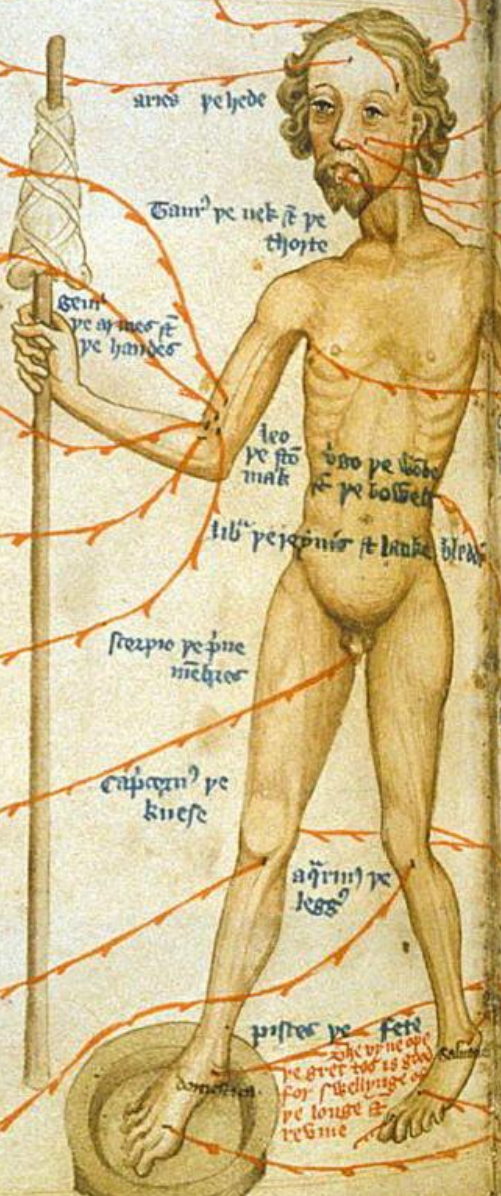 aries þe hede
Taur⁹ þe nek & þe
throte
Gem̃
þe armes &
þe handes
leo
þe sto
mak
þe wōbe
& þe bowell
lib̃ þe & bledd
scorpio þe p̃ue
mēbres
Cap̃corn⁹ þe
knese
aq̃ri⁹ þe
legg⁹
pisces þe fete
The vyne ope
þe gret too is good
for swellynge of
þe longe &
rewme